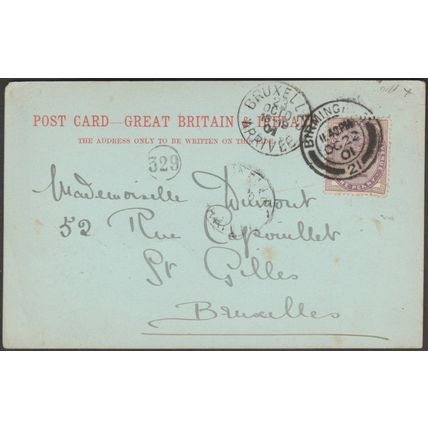 POST CARD—GREAT BRITAIN & IRELAND
THE ADDRESS ONLY TO BE WRITTEN ON THIS
BRUXELL
OCT
01
ARRIVEE
BIRMING
11.40PM
OC 22
01
21
PENNY
329
Mademoiselle Dumont
52 Rue Capouillet
St Gilles
Bruxelles